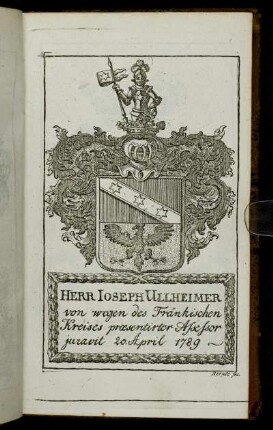 HERR IOSEPH ULLHEIMER
von wegen des Fränkischen
Kreises præsentirter Aſseſsor
juravit 20 April 1789 ~